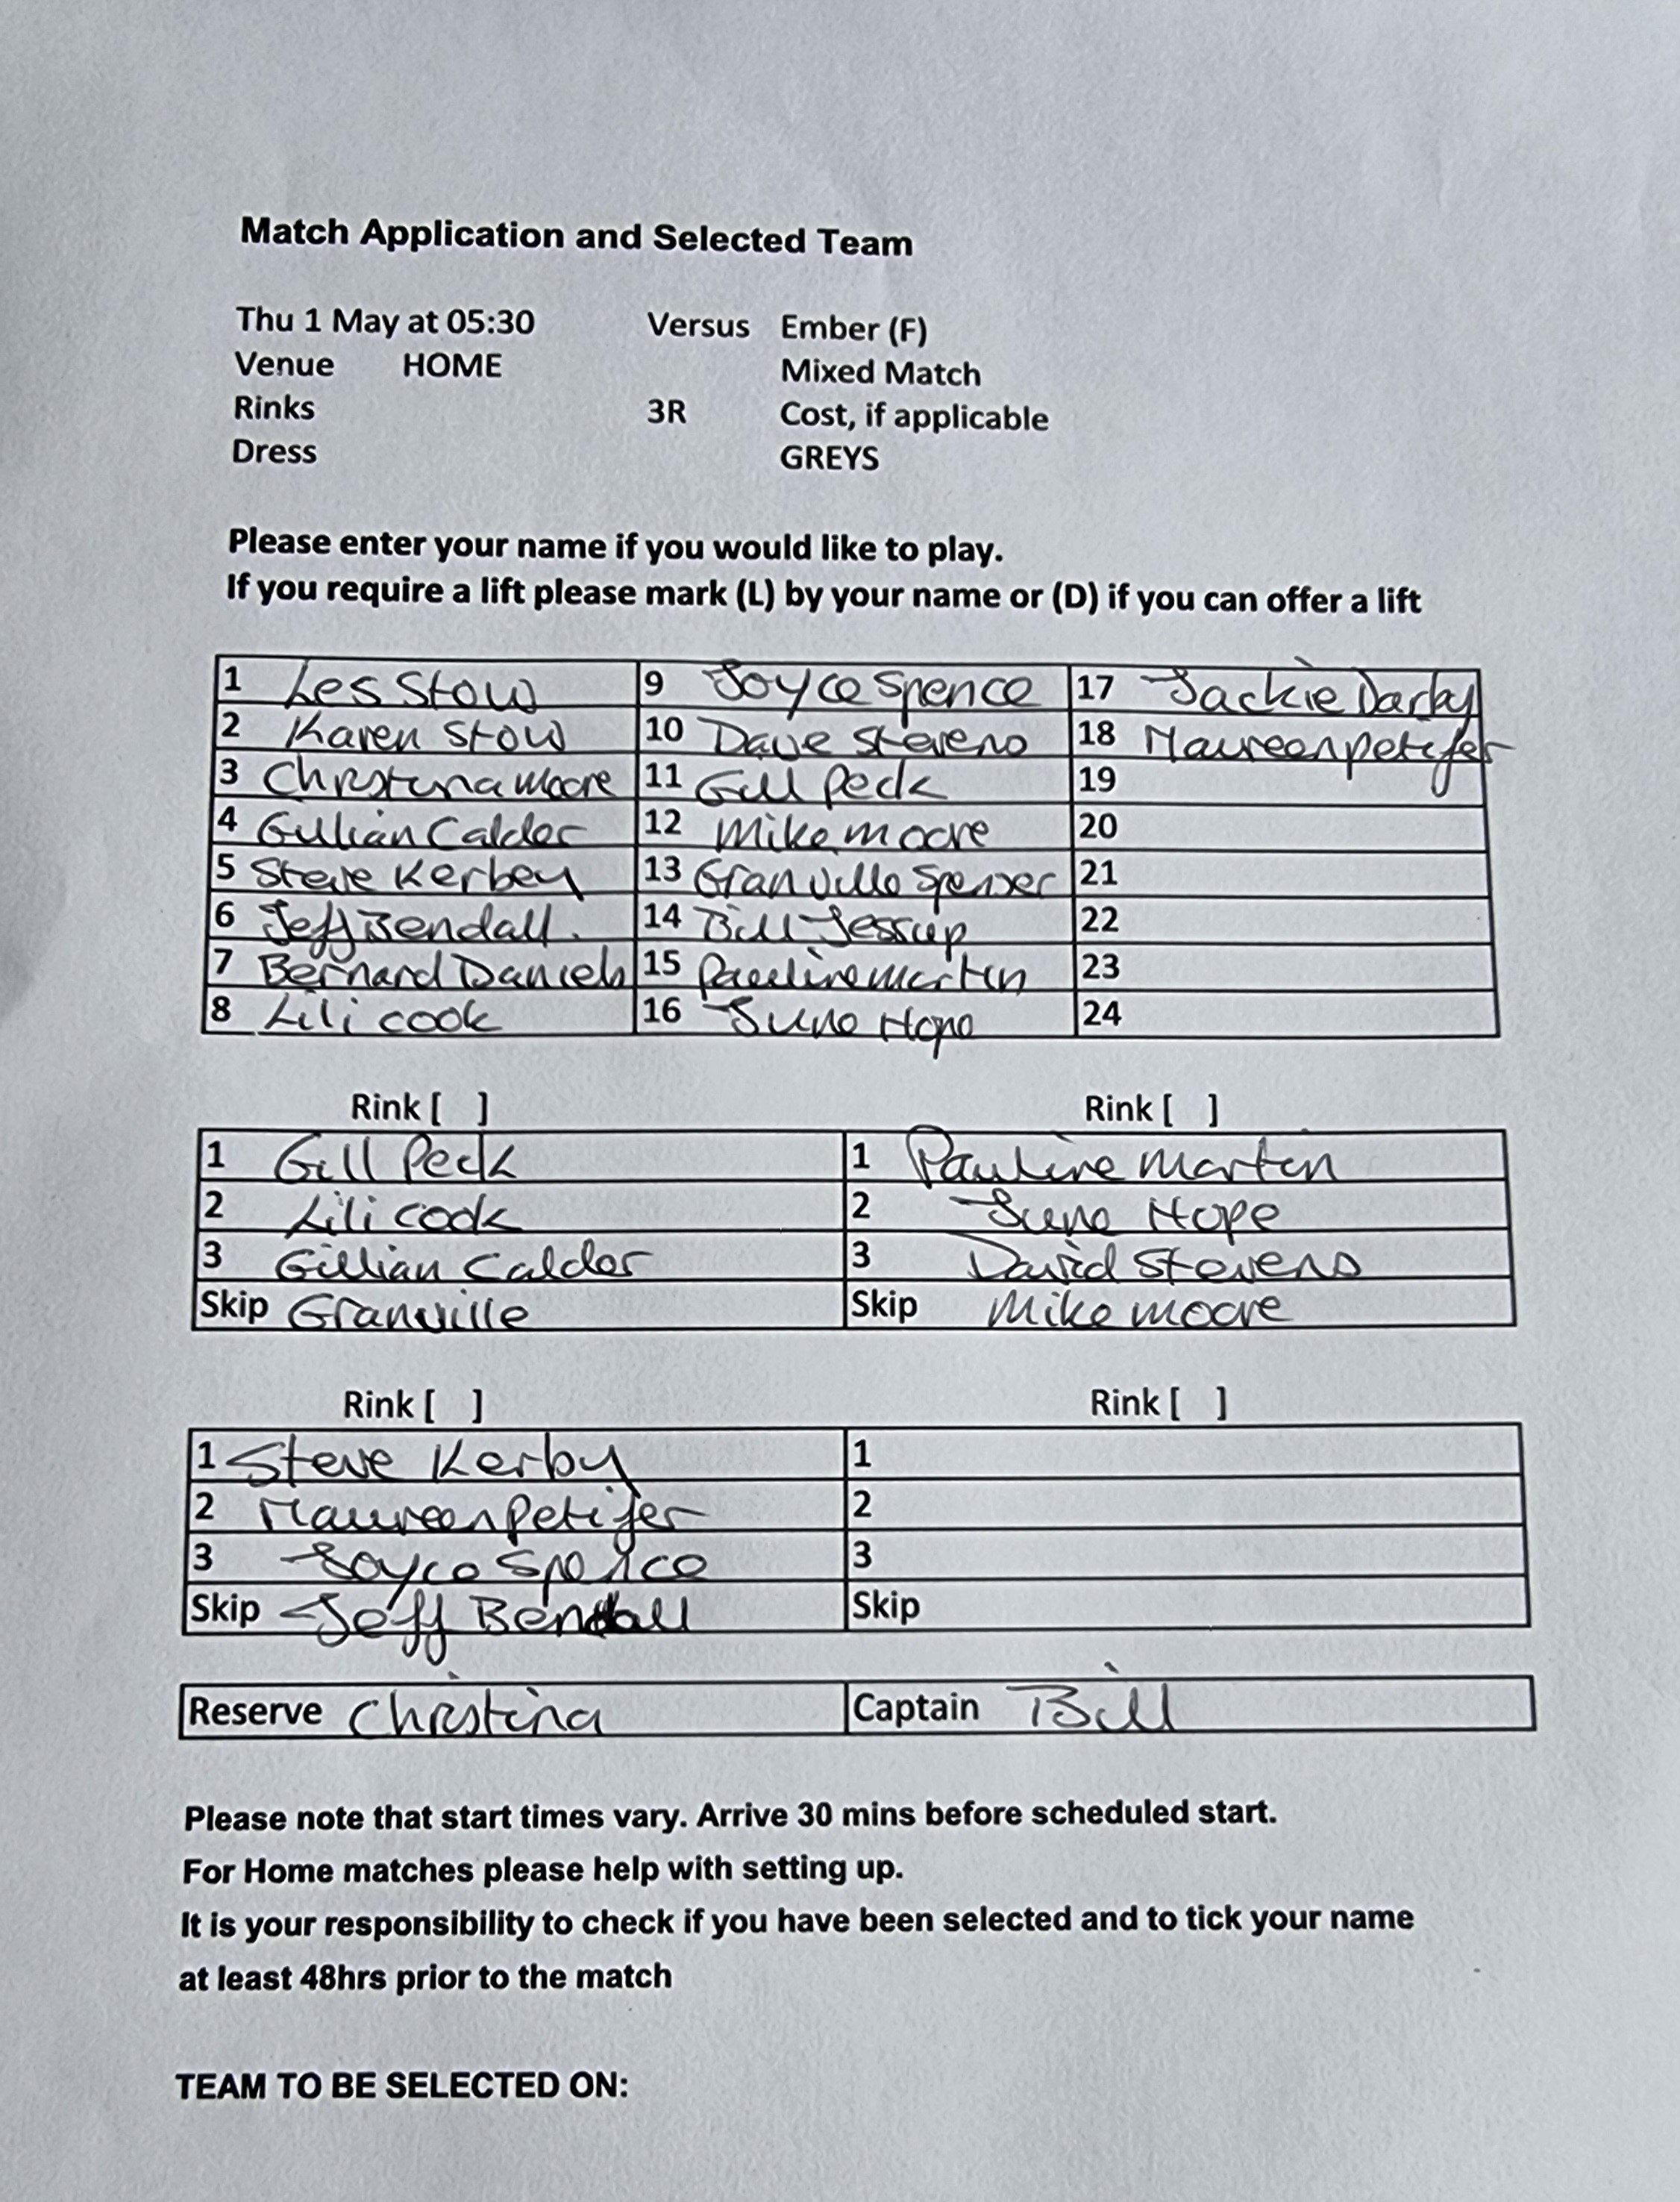 Match Application and Selected Team
Thu 1 May at 05:30 Versus Ember (F)
Venue HOME Mixed Match
Rinks 3R Cost, if applicable
Dress GREYS
Please enter your name if you would like to play.
If you require a lift please mark (L) by your name or (D) if you can offer a lift
1 Les Stow 9 Joyce Spence 17 Jackie Darby
2 Karen Stow 10 Dave Stevens 18 Maureen petifer
3 Christina Moore 11 Gill Peck 19
4 Gillian Calder 12 Mike moore 20
5 Steve Kerbey 13 Granville Spenser 21
6 Jeff Bendall. 14 Bill Jessup 22
7 Bernard Daniels 15 Pauline Martin 23
8 Lili cook 16 June Hope 24
Rink [ ] Rink [ ]
1 Gill Peck 1 Pauline Martin
2 Lili cook 2 June Hope
3 Gillian Calder 3 David Stevens
Skip Granville Skip Mike moore
Rink [ ] Rink [ ]
1 Steve Kerby 1
2 Maureen Petifer 2
3 Joyce Spence 3
Skip Jeff Bendall Skip
Reserve Christina Captain Bill
Please note that start times vary. Arrive 30 mins before scheduled start.
For Home matches please help with setting up.
It is your responsibility to check if you have been selected and to tick your name
at least 48hrs prior to the match
TEAM TO BE SELECTED ON: